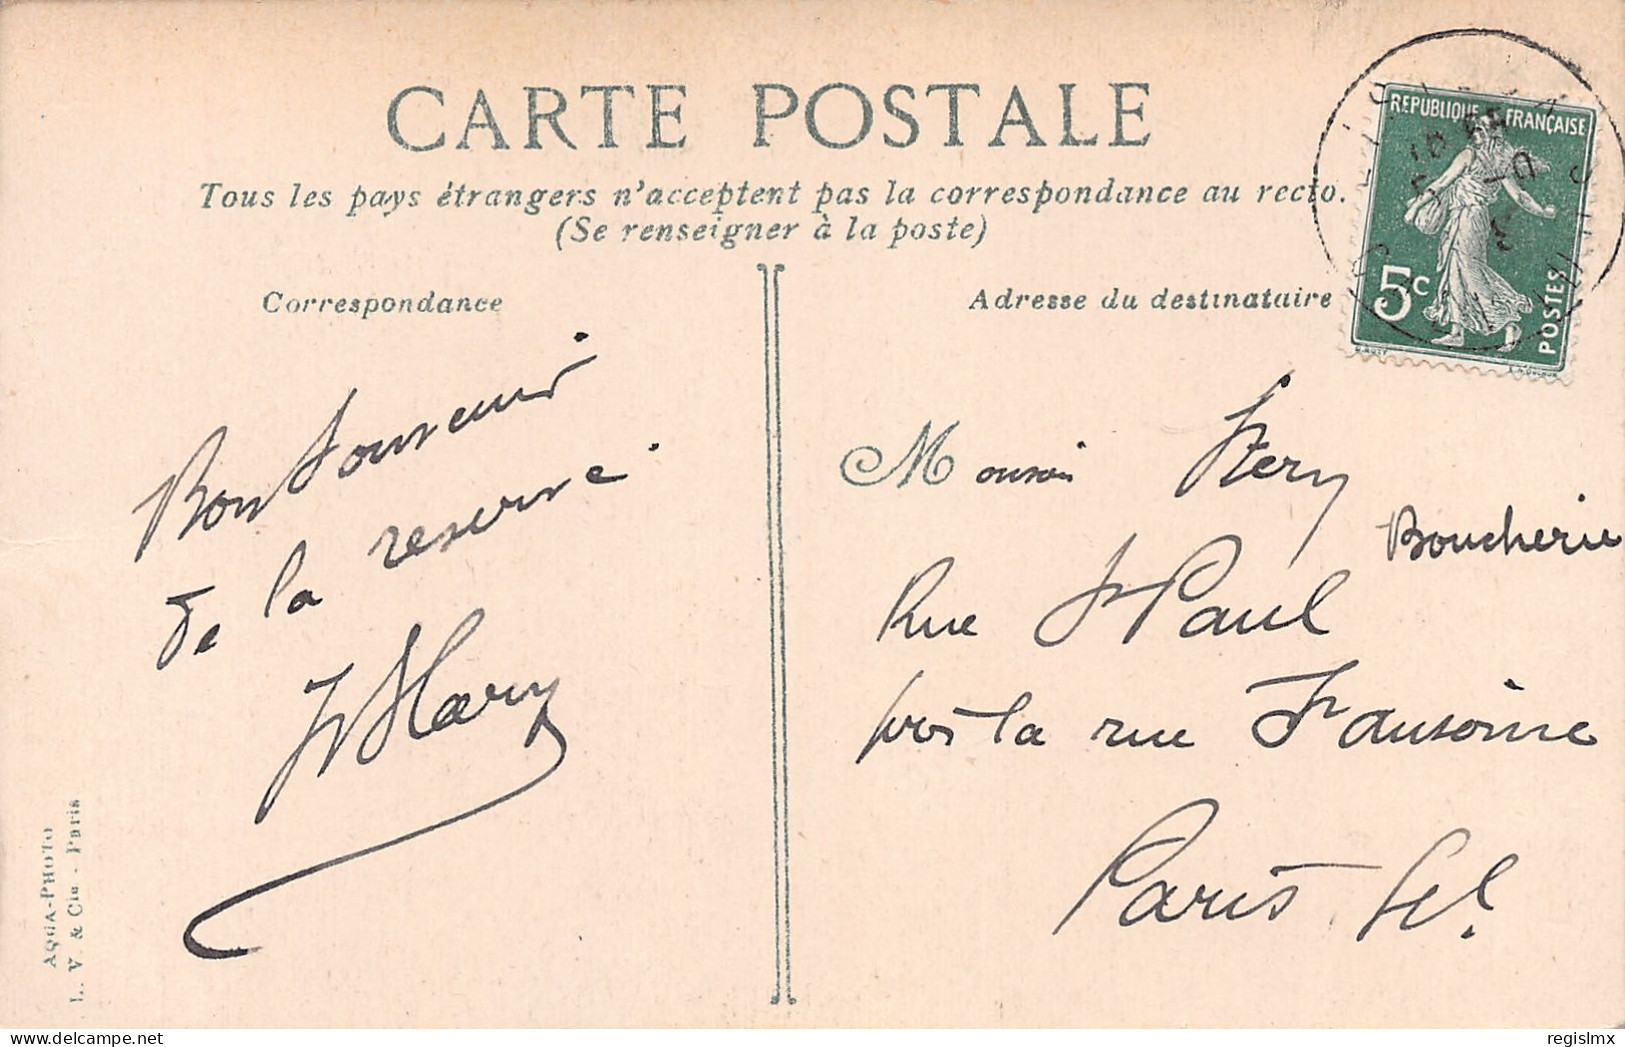 CARTE POSTALE
Tous les pays étrangers n'acceptent pas la correspondance au recto.
(Se renseigner à la poste)
Correspondance
Adresse du destinataire
REPUBLIQUE FRANÇAISE
5c
POSTES
Bon Souvenir
de la reserve
M
Boucherie
Rue St Paul
près la rue St Antoine
Paris
AQUA-PHOTO
L. V. & Cie - Paris
regislmx